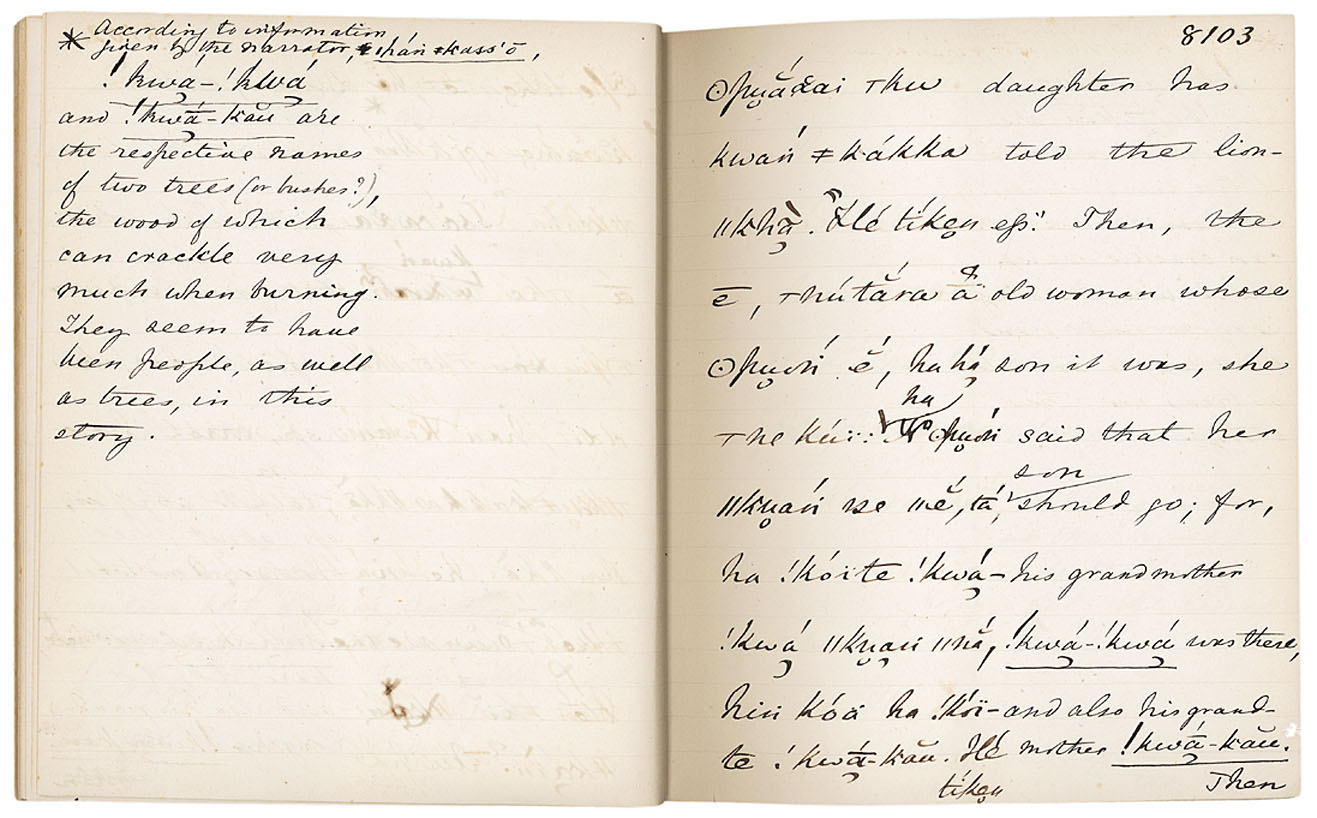 * According to information
given by the narrator, ǂhán ǂkass'ō,
!kwa-!kwá
and !kwá-kău are
the respective names
of two trees (or bushes?),
the wood of which
can crackle very
much when burning.
They seem to have
been people, as well
as trees, in this
story.
8103
daughter has
kwań ǂkákka told the lion-
ǁkhā̀. "Hé tíken ess." Then, the
ē, old woman whose
ē, ha há son it was, she
ha
said that her
son
should go; for,
ha !kóïte !kwá- his grandmother
!kwá ǁkuań ǁnă, !kwá-!kwá was there,
hiń kóä ha !kóï- and also his grand-
te !kwá-kău. Hé mother !kwá-kău.
tíken Then